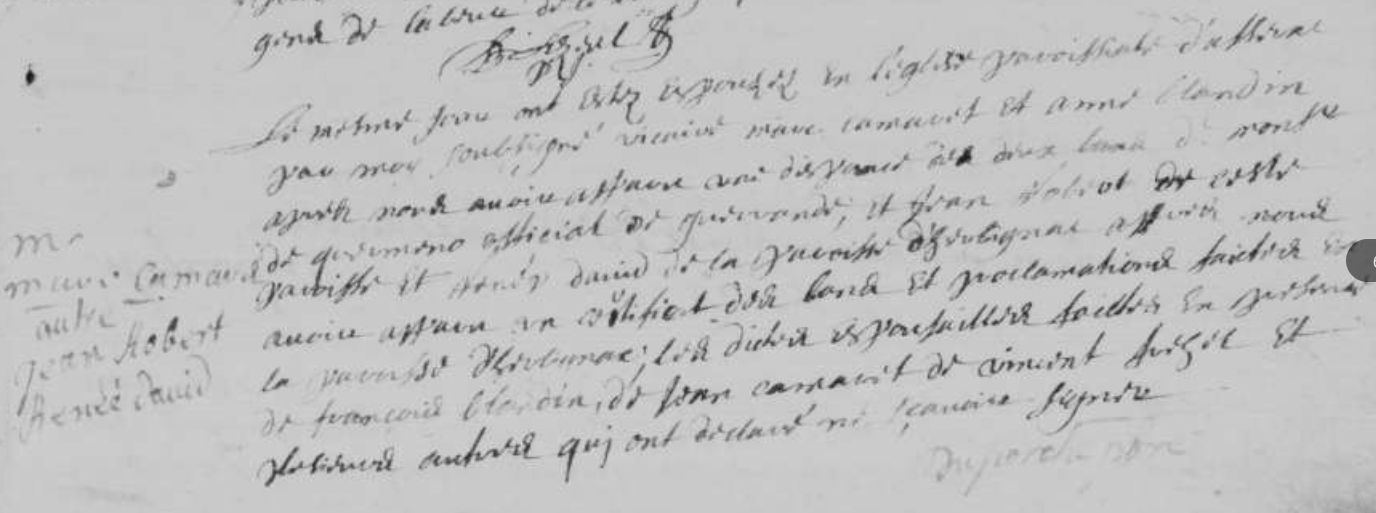 gens de
Le mesme jour ont estez espousez en l'eglise paroissiale d'asserac
par moy soubsigné vicaire marc camaret et anne blandin
apprés nous avoir apparu une dispance des deux bans de
de guermeno official de guerrande, et jean Robert de ceste
paroisse et Renée david de la paroisse d'herbignac apprés nous
avoir apparu un certificat des bans et proclamations faictes en
la paroisse d'herbignac, les dictes espousailles faictes en presence
de francois blandin, de jean camaret de vincent et
plusieurs autres qui ont declaré ne sçavoir signer
m
marc camaret
autre
jean Robert
Renée david